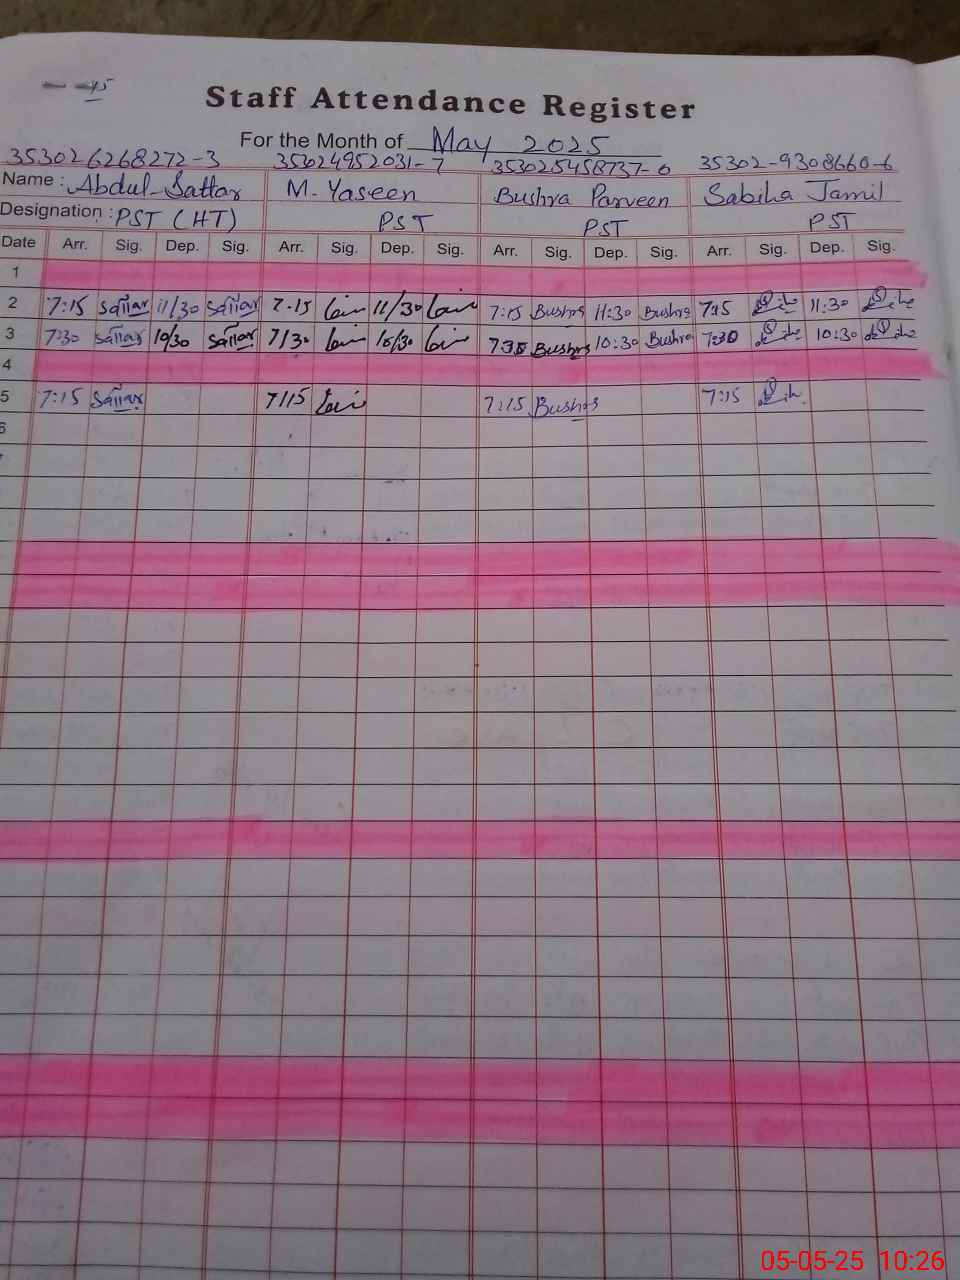 Staff Attendance Register
For the Month of May 2025
353026268272-3 353024952031-7 353025458737-0 35302-9308660-6
Name : Abdul Sattar M. Yaseen Bushra Parveen Sabiha Jamil
Designation : PST (HT) PST PST PST
Date Arr. Sig. Dep. Sig. Arr. Sig. Dep. Sig. Arr. Sig. Dep. Sig. Arr. Sig. Dep. Sig.
1
2 7:15 Sattar 11/30 Sattar 7.15 11/30 7:15 Bushra 11:30 Bushra 7:15 11:30
3 7:30 Sattar 10/30 Sattar 7/30 10/30 7:30 Bushra 10:30 Bushra 7:30 10:30
4
5 7:15 Sattar 7/15 7:15 Bushra 7:15
6
05-05-25 10:26